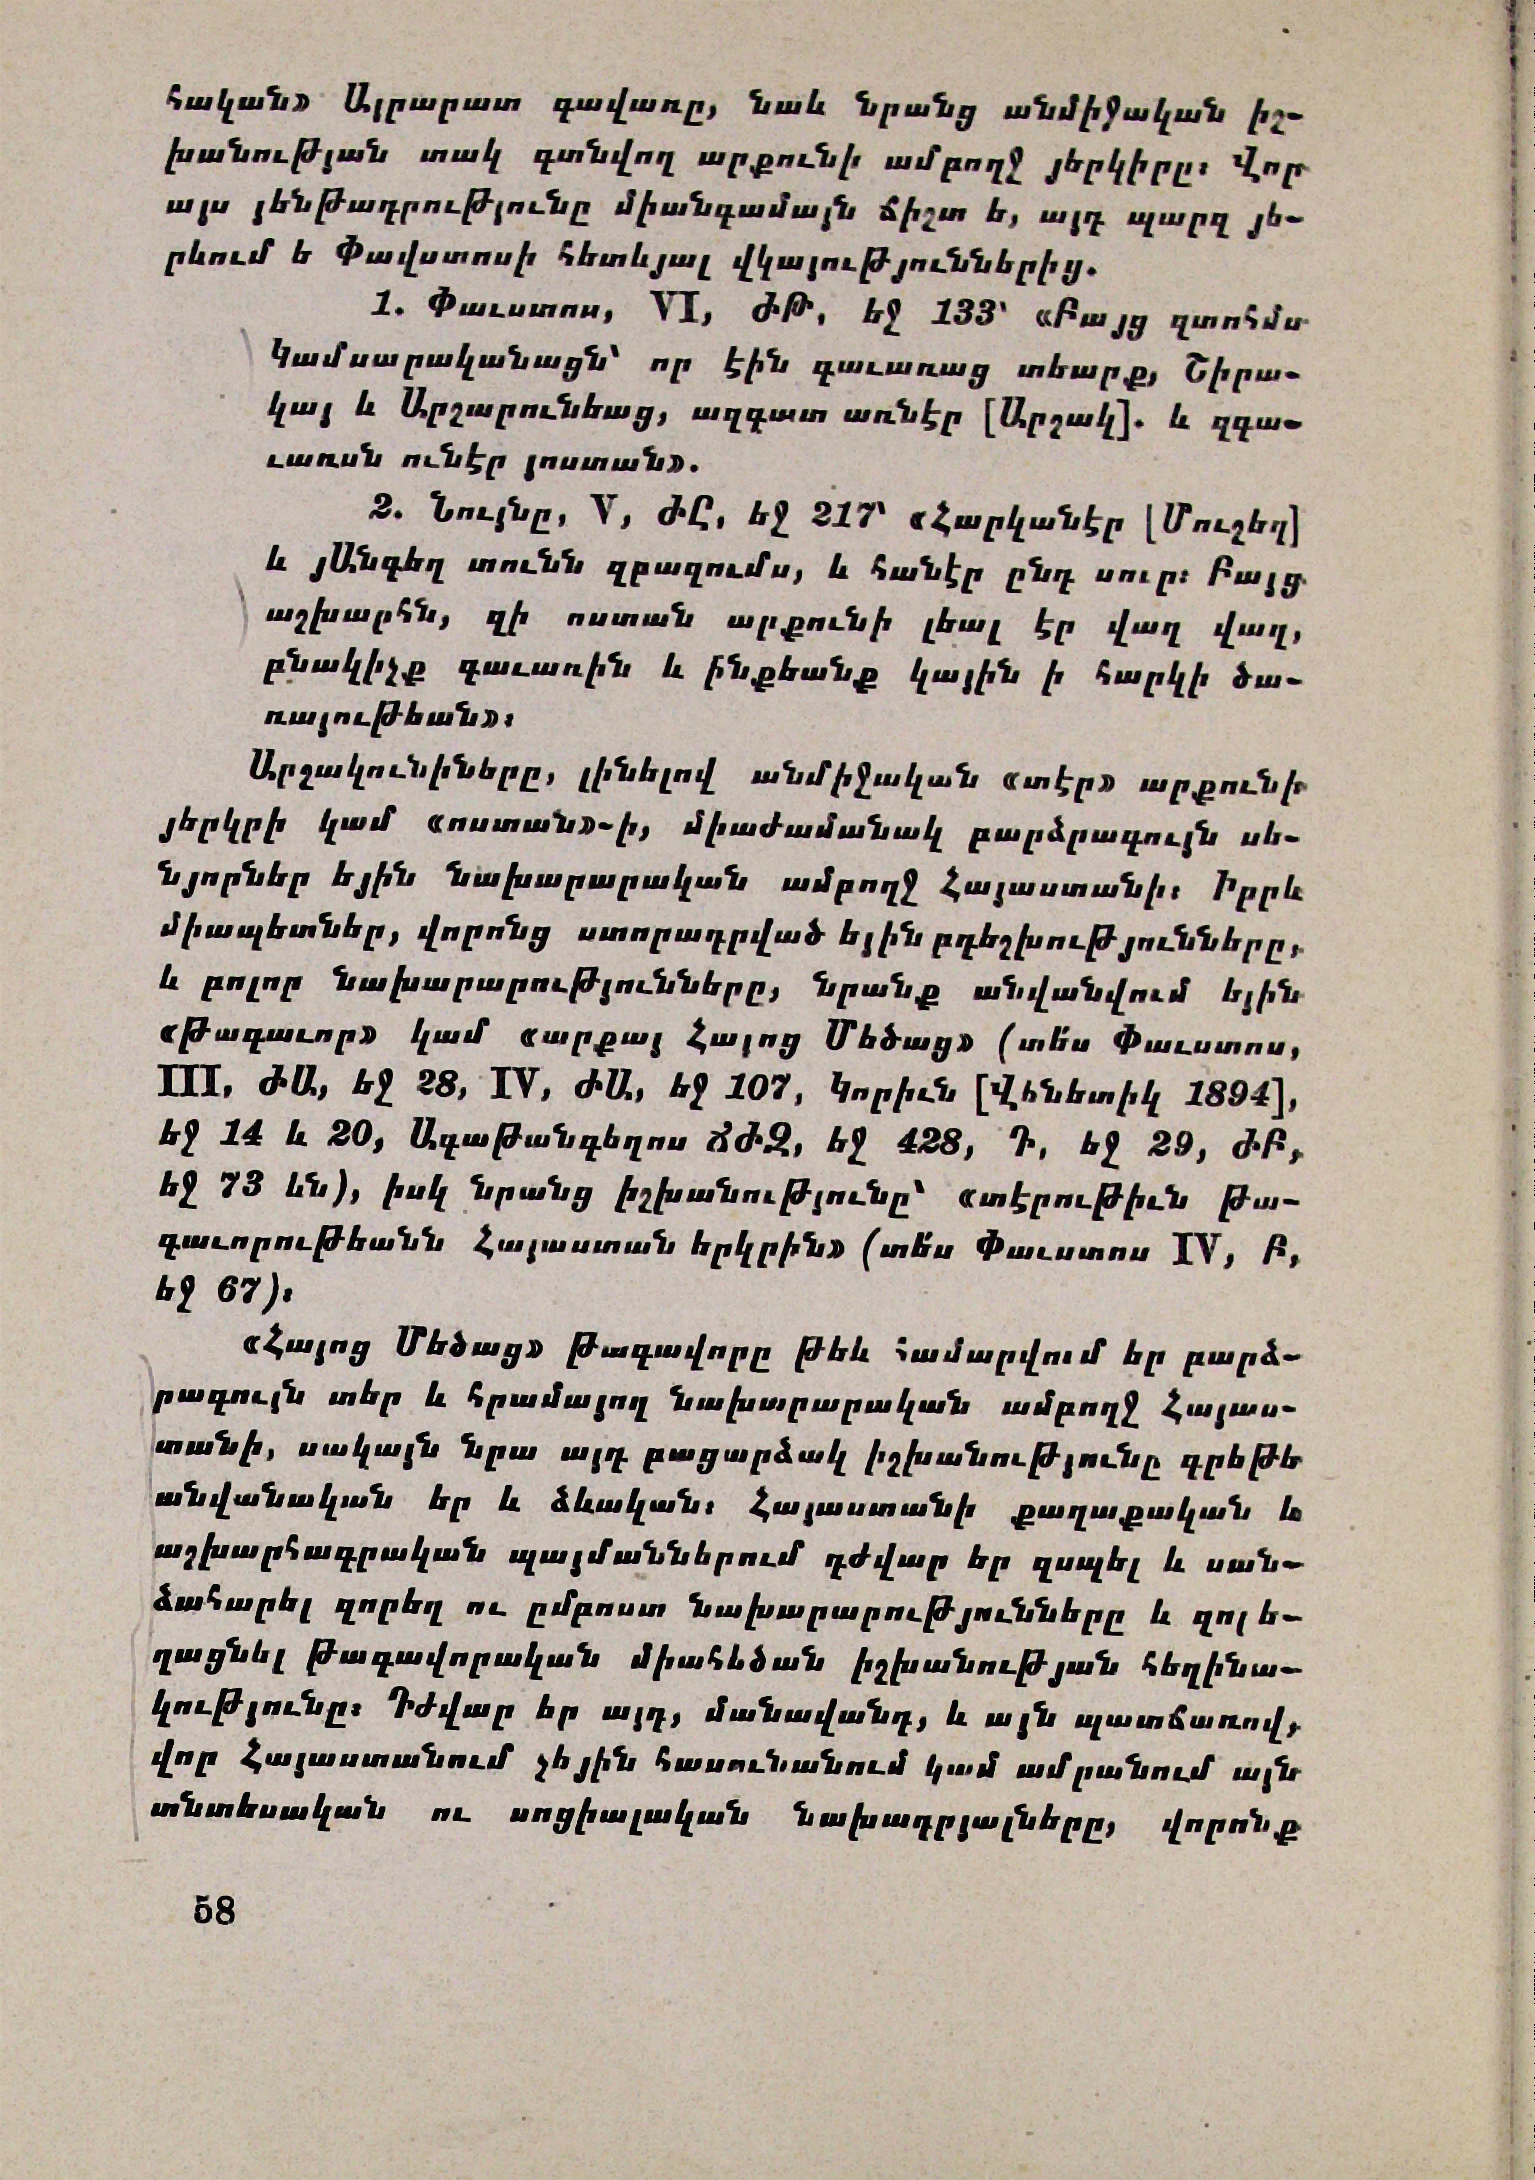 հական» Այրարատ գավառը, նաև նրանց անմիջական իշ-
խանության տակ գտնվող արքունի ամբողջ յերկիրը։ Վոր
այս յենթադրությունը միանգամայն ճիշտ ե, այդ պարզ յե-
րևում ե Փավստոսի հետևյալ վկայություններից.
1. Փաւստոս, VI, ԺԹ, եջ 133՝ «Բայց զտոհմս
Կամսարականացն՝ որ էին գաւառաց տեարք, Շիրա-
կայ և Արշարունեաց, ազգատ առնէր [Արշակ]. և զգա-
ւառսն ունէր յոստան».
2. Նույնը, V, ԺԸ, եջ 217՝ «Հարկանէր [Մուշեղ]
և յԱնգեղ տունն զբազումս, և հանէր ընդ սուր։ Բայց
աշխարհն, զի ոստան արքունի լեալ էր վաղ վաղ,
բնակիչք գաւառին և ինքեանք կային ի հարկի ծա-
ռայութեան»։
Արշակունիները, լինելով անմիջական «տէր» արքունի
յերկրի կամ «ոստան»-ի, միաժամանակ բարձրագույն սե-
նյորներ եյին նախարարական ամբողջ Հայաստանի։ Իբրև
միապետներ, վորոնց ստորադրված եյին բդեշխությունները,
և բոլոր նախարարությունները, նրանք անվանվում եյին
«Թագաւոր» կամ «արքայ Հայոց Մեծաց» (տե՛ս Փաւստոս,
III, ԺԱ, եջ 28, IV, ԺԱ, եջ 107, Կորիւն [Վհնետիկ 1894],
եջ 14 և 20, Ագաթանգեղոս ՃԺԶ, եջ 428, Դ, եջ 29, ԺԲ,
եջ 73 ևն), իսկ նրանց իշխանությունը՝ «տէրութիւն թա-
գաւորութեանն Հայաստան երկրին» (տե՛ս Փաւստոս IV, Բ,
եջ 67)։
«Հայոց Մեծաց» թագավորը թեև համարվում եր բարձ-
րագույն տեր և հրամայող նախարարական ամբողջ Հայաս-
տանի, սակայն նրա այդ բացարձակ իշխանությունը գրեթե
անվանական եր և ձևական։ Հայաստանի քաղաքական և
աշխարհագրական պայմաններում դժվար եր զսպել և սան-
ձահարել զորեղ ու ըմբոստ նախարարությունները և զոլե-
ղացնել թագավորական միահեծան իշխանության հեղինա-
կությունը։ Դժվար եր այդ, մանավանդ, և այն պատճառով,
վոր Հայաստանում չեյին հասունանում կամ ամրանում այն
տնտեսական ու սոցիալական նախադրյալները, վորոնք
58